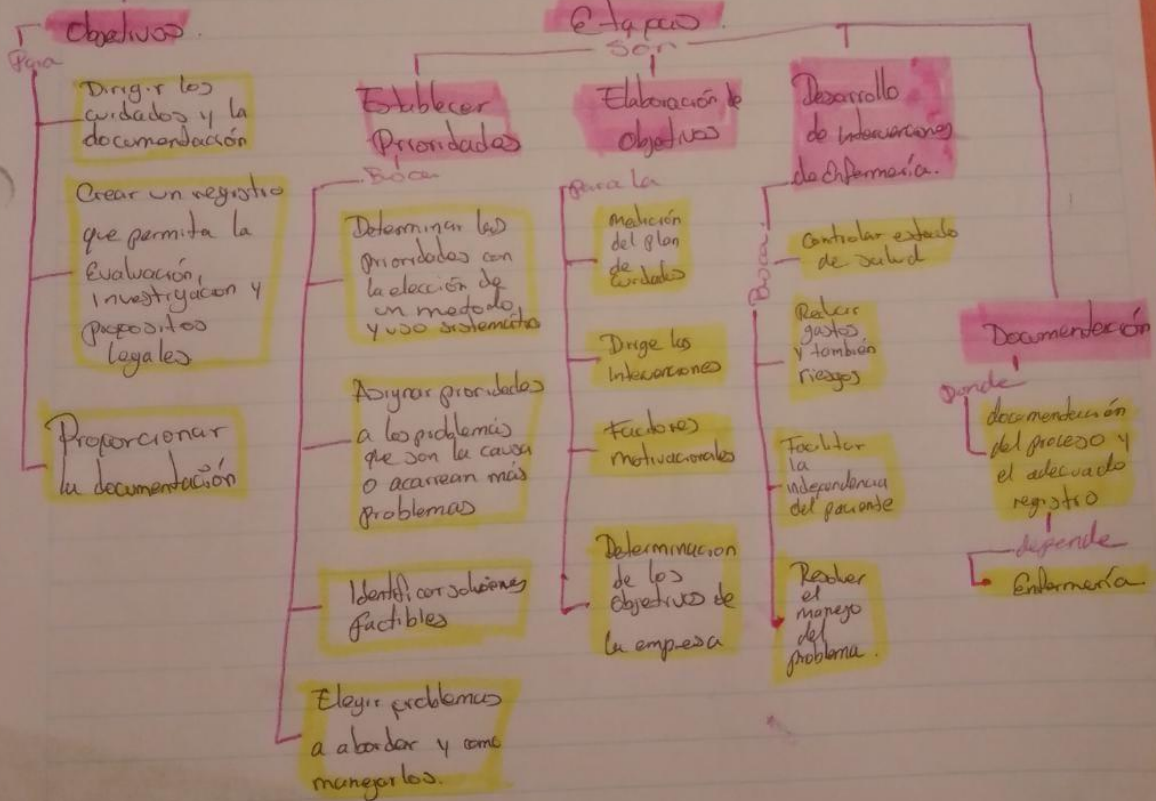 Objetivos.
Para
Dirigir los
cuidados y la
documentación
Crear un registro
que permita la
Evaluación,
investigación y
propositos
legales
Proporcionar
la documentación
Etapas
Son
Establecer
Prioridades
Buscan
Determinar las
prioridades con
la elección de
un metodo,
y uso sistemático
Asignar prioridades
a los problemas
que son la causa
o acarrean más
problemas
Identificar soluciones
factibles
Elegir problemas
a abordar y como
manejarlos.
Elaboración de
Objetivos
para la
medición
del plan
de
cuidados
Dirige las
Intervenciones
Factores
motivacionales
Determinacion
de los
objetivos de
la empresa
Desarrollo
de Intervenciones
de Enfermería.
Buscan
Controlar estado
de salud
Reducir
gastos
y también
riesgos
Facilitar
la
independencia
del paciente
Resolver
el
manejo
del
problema.
Documentación
Donde
documentación
del proceso y
el adecuado
registro
depende
Enfermería.